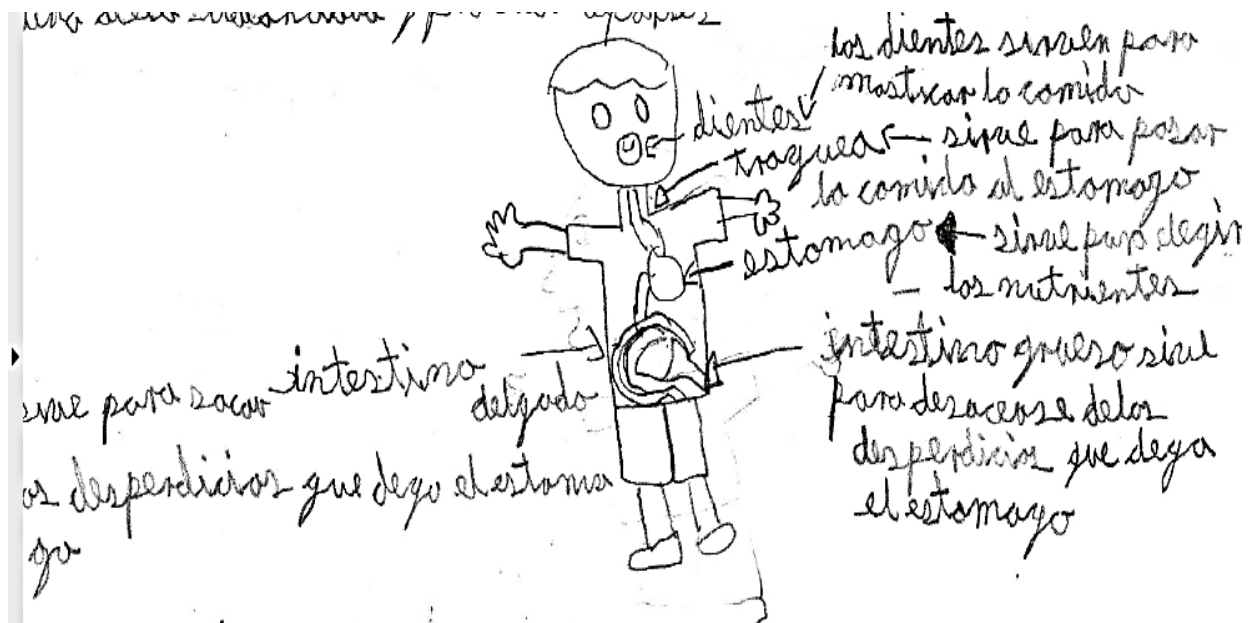 los dientes sirven para
masticar la comida
dientes
traquea
sirve para pasar
la comida al estomago
estomago
sirve para degir
los nutrientes
intestino
delgado
sirve para sacar
os desperdicios que dego el estoma
go
intestino grueso sirve
para desacerse de los
desperdicios que dega
el estomago